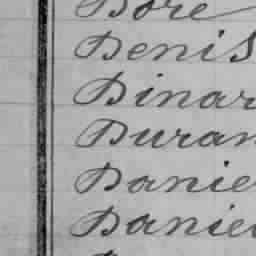 Dore
Denis
Dinar
Duran
Danie
Danie